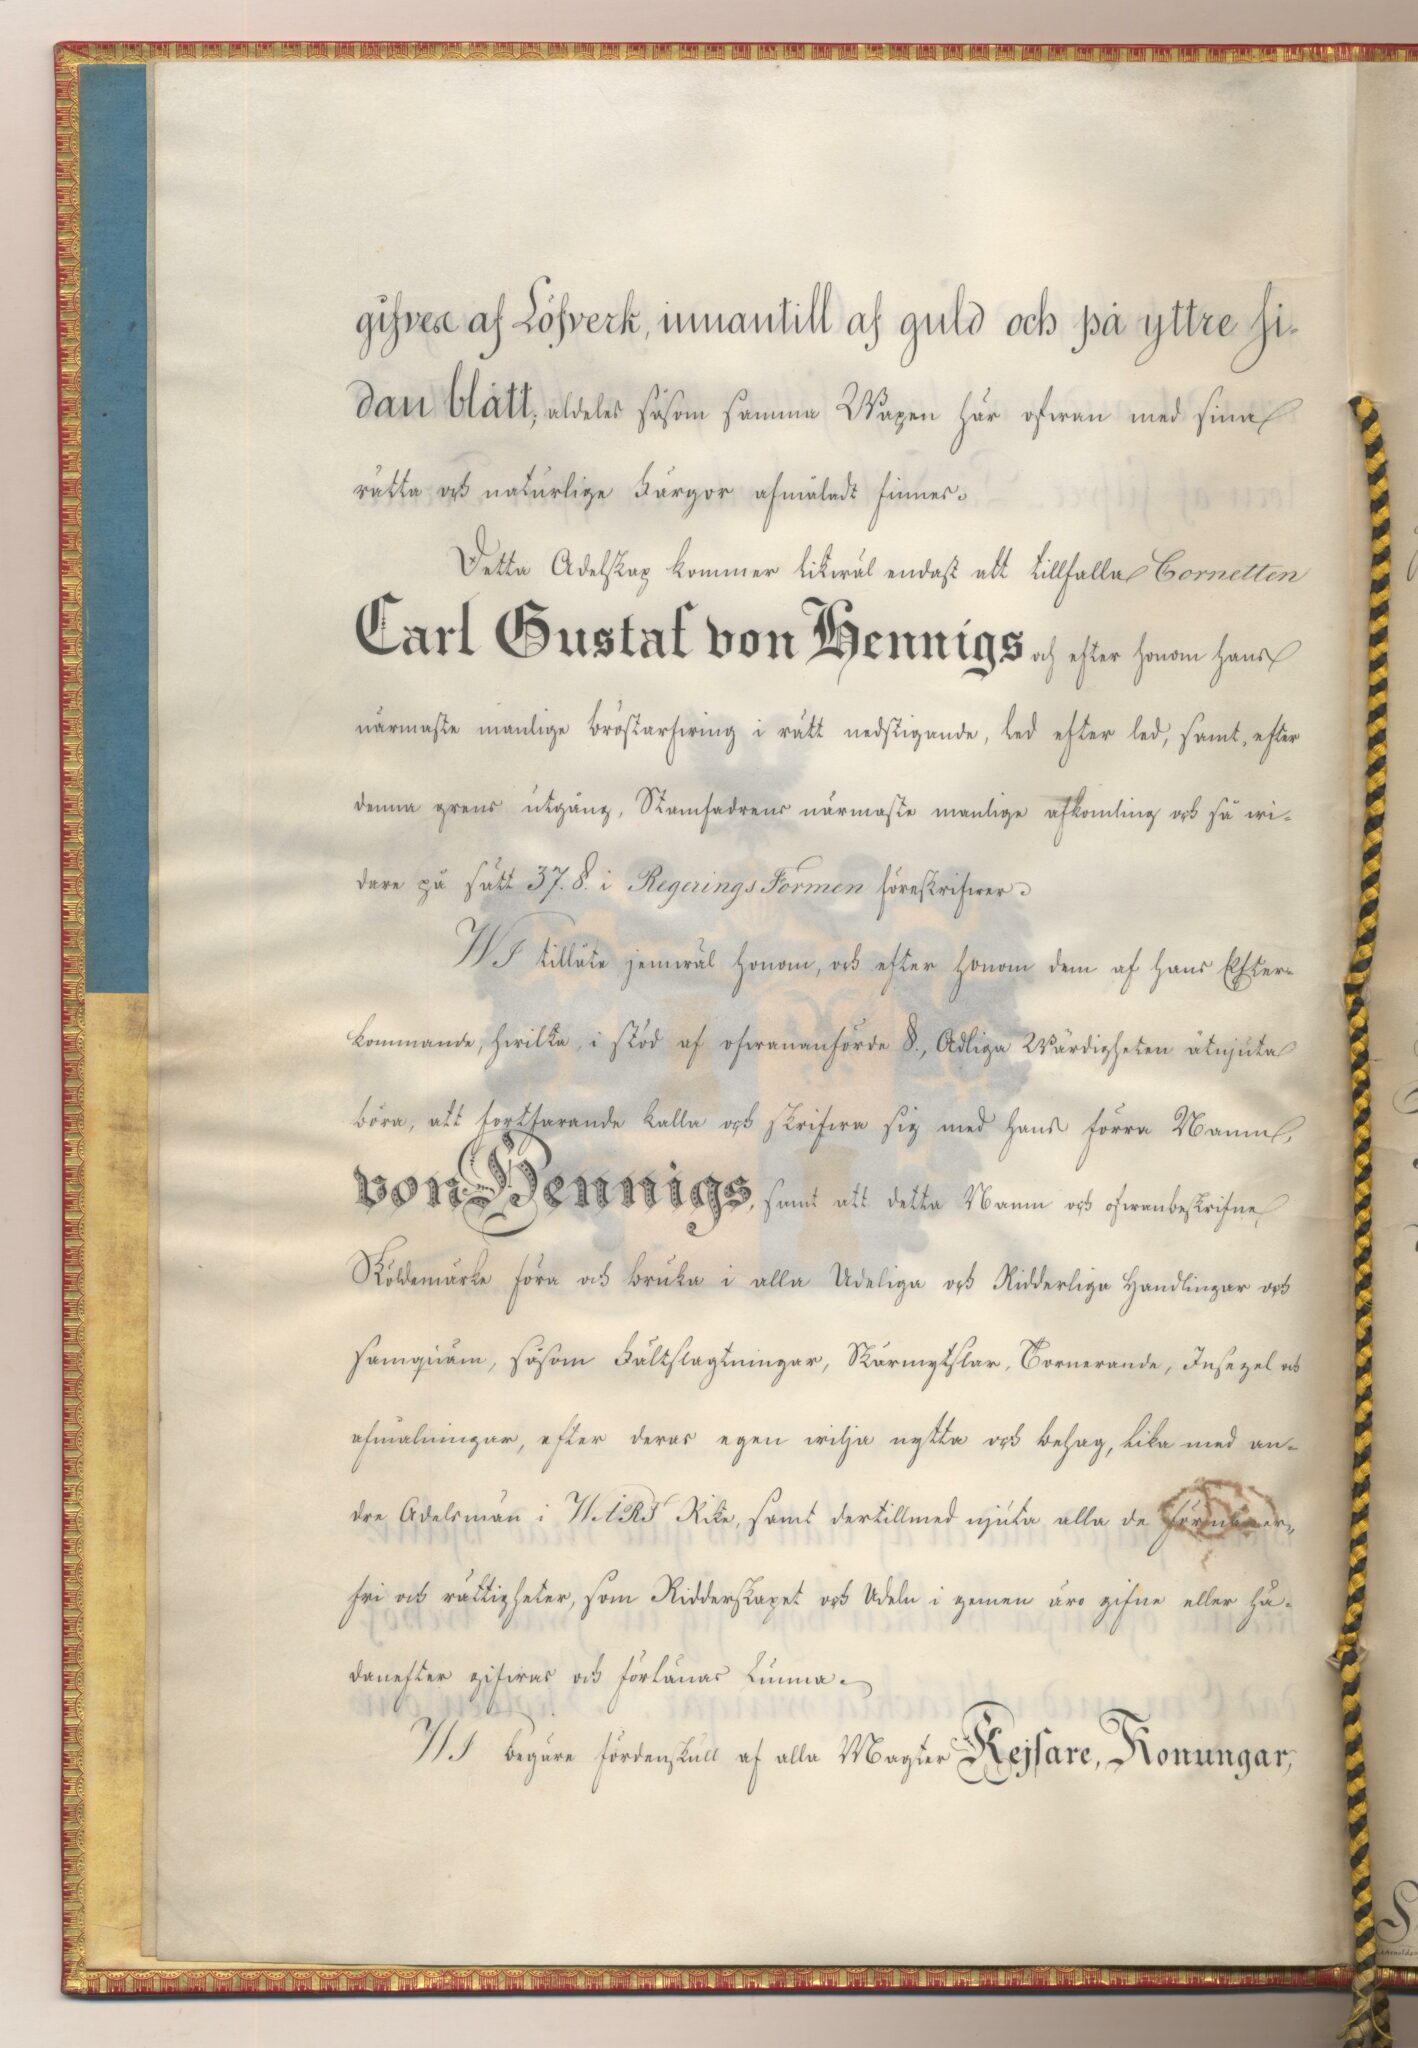 gifves af Löfverk, innantill af guld och på yttre si-
dan blått; aldeles såsom samma Wapen här ofwan med sina
rätta och naturlige Färgor afmåladt finnes.
Detta Adelskap kommer likwäl endast att tillfalla Cornetten
Carl Gustaf von Hennigs och efter honom hans
närmaste manlige bröstarfwing i rätt nedstigande, led efter led, samt, efter
denna grens utgång, Stamfadrens närmaste manlige afkomling och så wi-
dare på sätt 37. §. i Regerings Formen föreskrifwer.
WI tillåte jemwäl Honom, och efter Honom dem af Hans Efter-
kommande, hwilka, i stöd af ofwananförde §., Adliga Wärdigheten åtnjuta
böra, att fortfarande kalla och skrifwa sig med hans förra Namn,
von Hennigs, samt att detta Namn och ofwanbeskrifne
Sköldemärke föra och bruka i alla Adeliga och Ridderliga Handlingar och
samquäm, såsom Fältslagtningar, Skärmytslar, Tornerande, Insegel och
afmålningar, efter deras egen wilja nytta och behag, lika med an-
dre Adelsmän i WÅRT Rike, samt dertillmed njuta alla de förmåner,
fri och rättigheter, som Ridderskapet och Adeln i gemen äro gifne eller hä-
danefter gifwas och förlänas kunna.
WI begäre fördenskull af alla Magter Kejsare, Konungar,